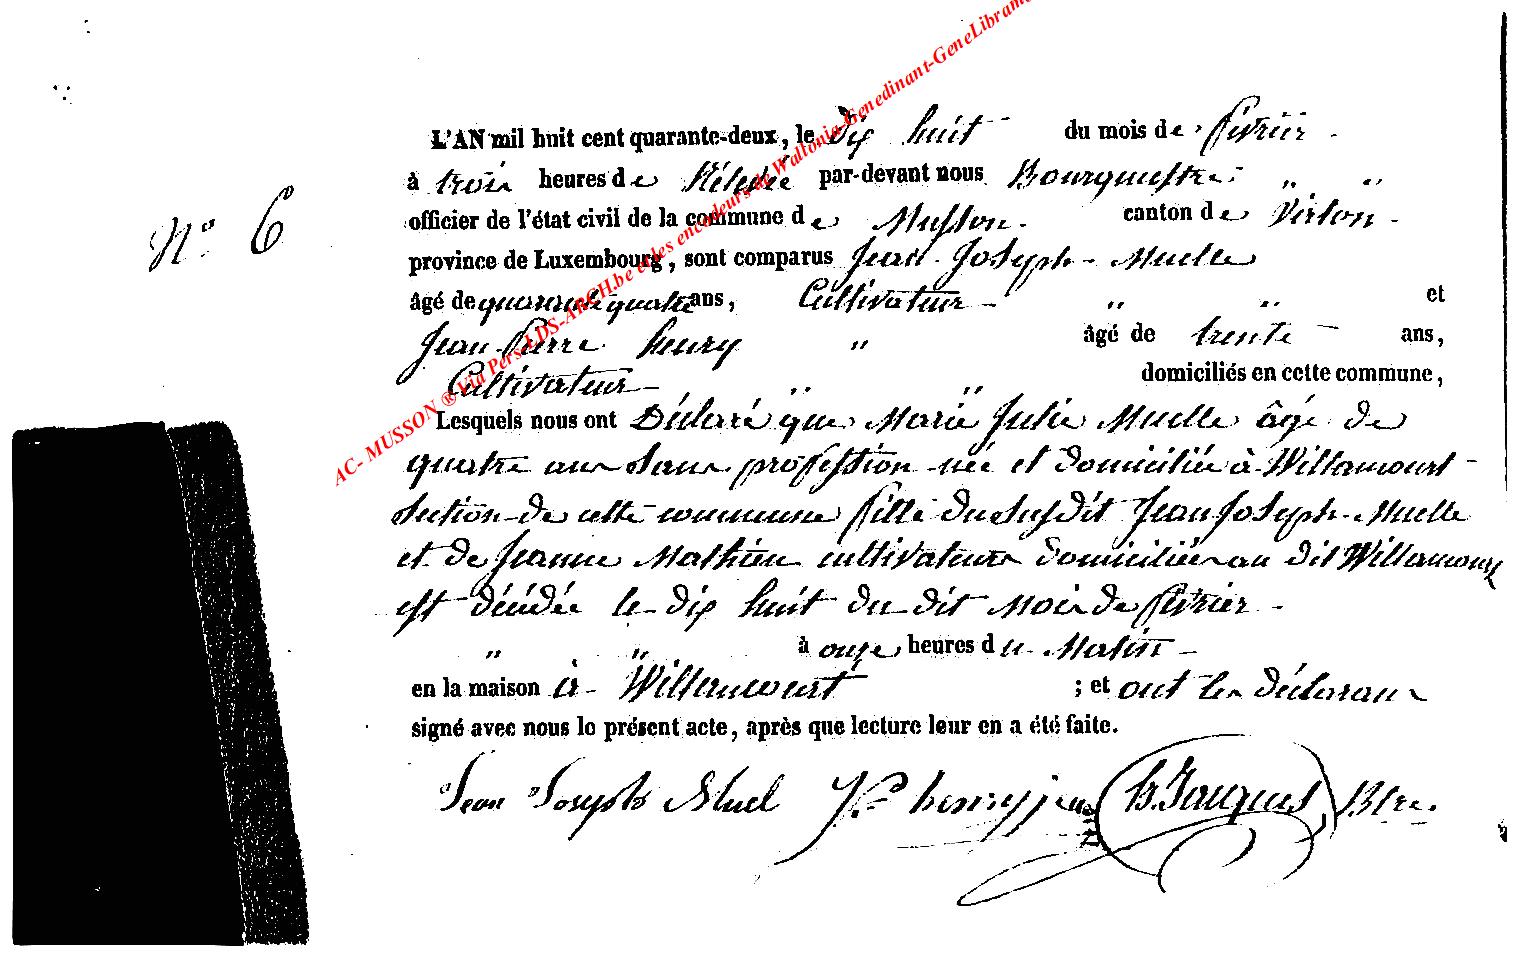 L'AN mil huit cent quarante-deux, le dix huit du mois de février
N° 6
à trois heures de Rélevée par-devant nous Bourgmestre " "
officier de l'état civil de la commune de Musson. canton de Virton.
province de Luxembourg, sont comparus Jean Joseph Muelle
âgé de quarante quatre ans, Cultivateur " " et
Jean Pierre henry " âgé de trente ans,
Cultivateur " " domiciliés en cette commune,
Lesquels nous ont Déclaré que Marie Julie Muelle âgé de
quatre ans Sans profession née et domiciliée à Willancourt
Section de cette commune fille du susdit Jean Joseph Muelle
et de Jeanne Mathieu cultivateurs domiciliés au dit Willancourt
est décédée le dix huit du dit Mois de février
" " à onze heures du Matin
en la maison à Willancourt ; et ont les déclarans
signé avec nous le présent acte, après que lecture leur en a été faite.
Jean Joseph Muel J. P. henry B. Jacques Btre.
AC- MUSSON ® Via Pers-LDS-ARCH.be et les encodeurs de Wallonia-Genedinant-GeneLibrame